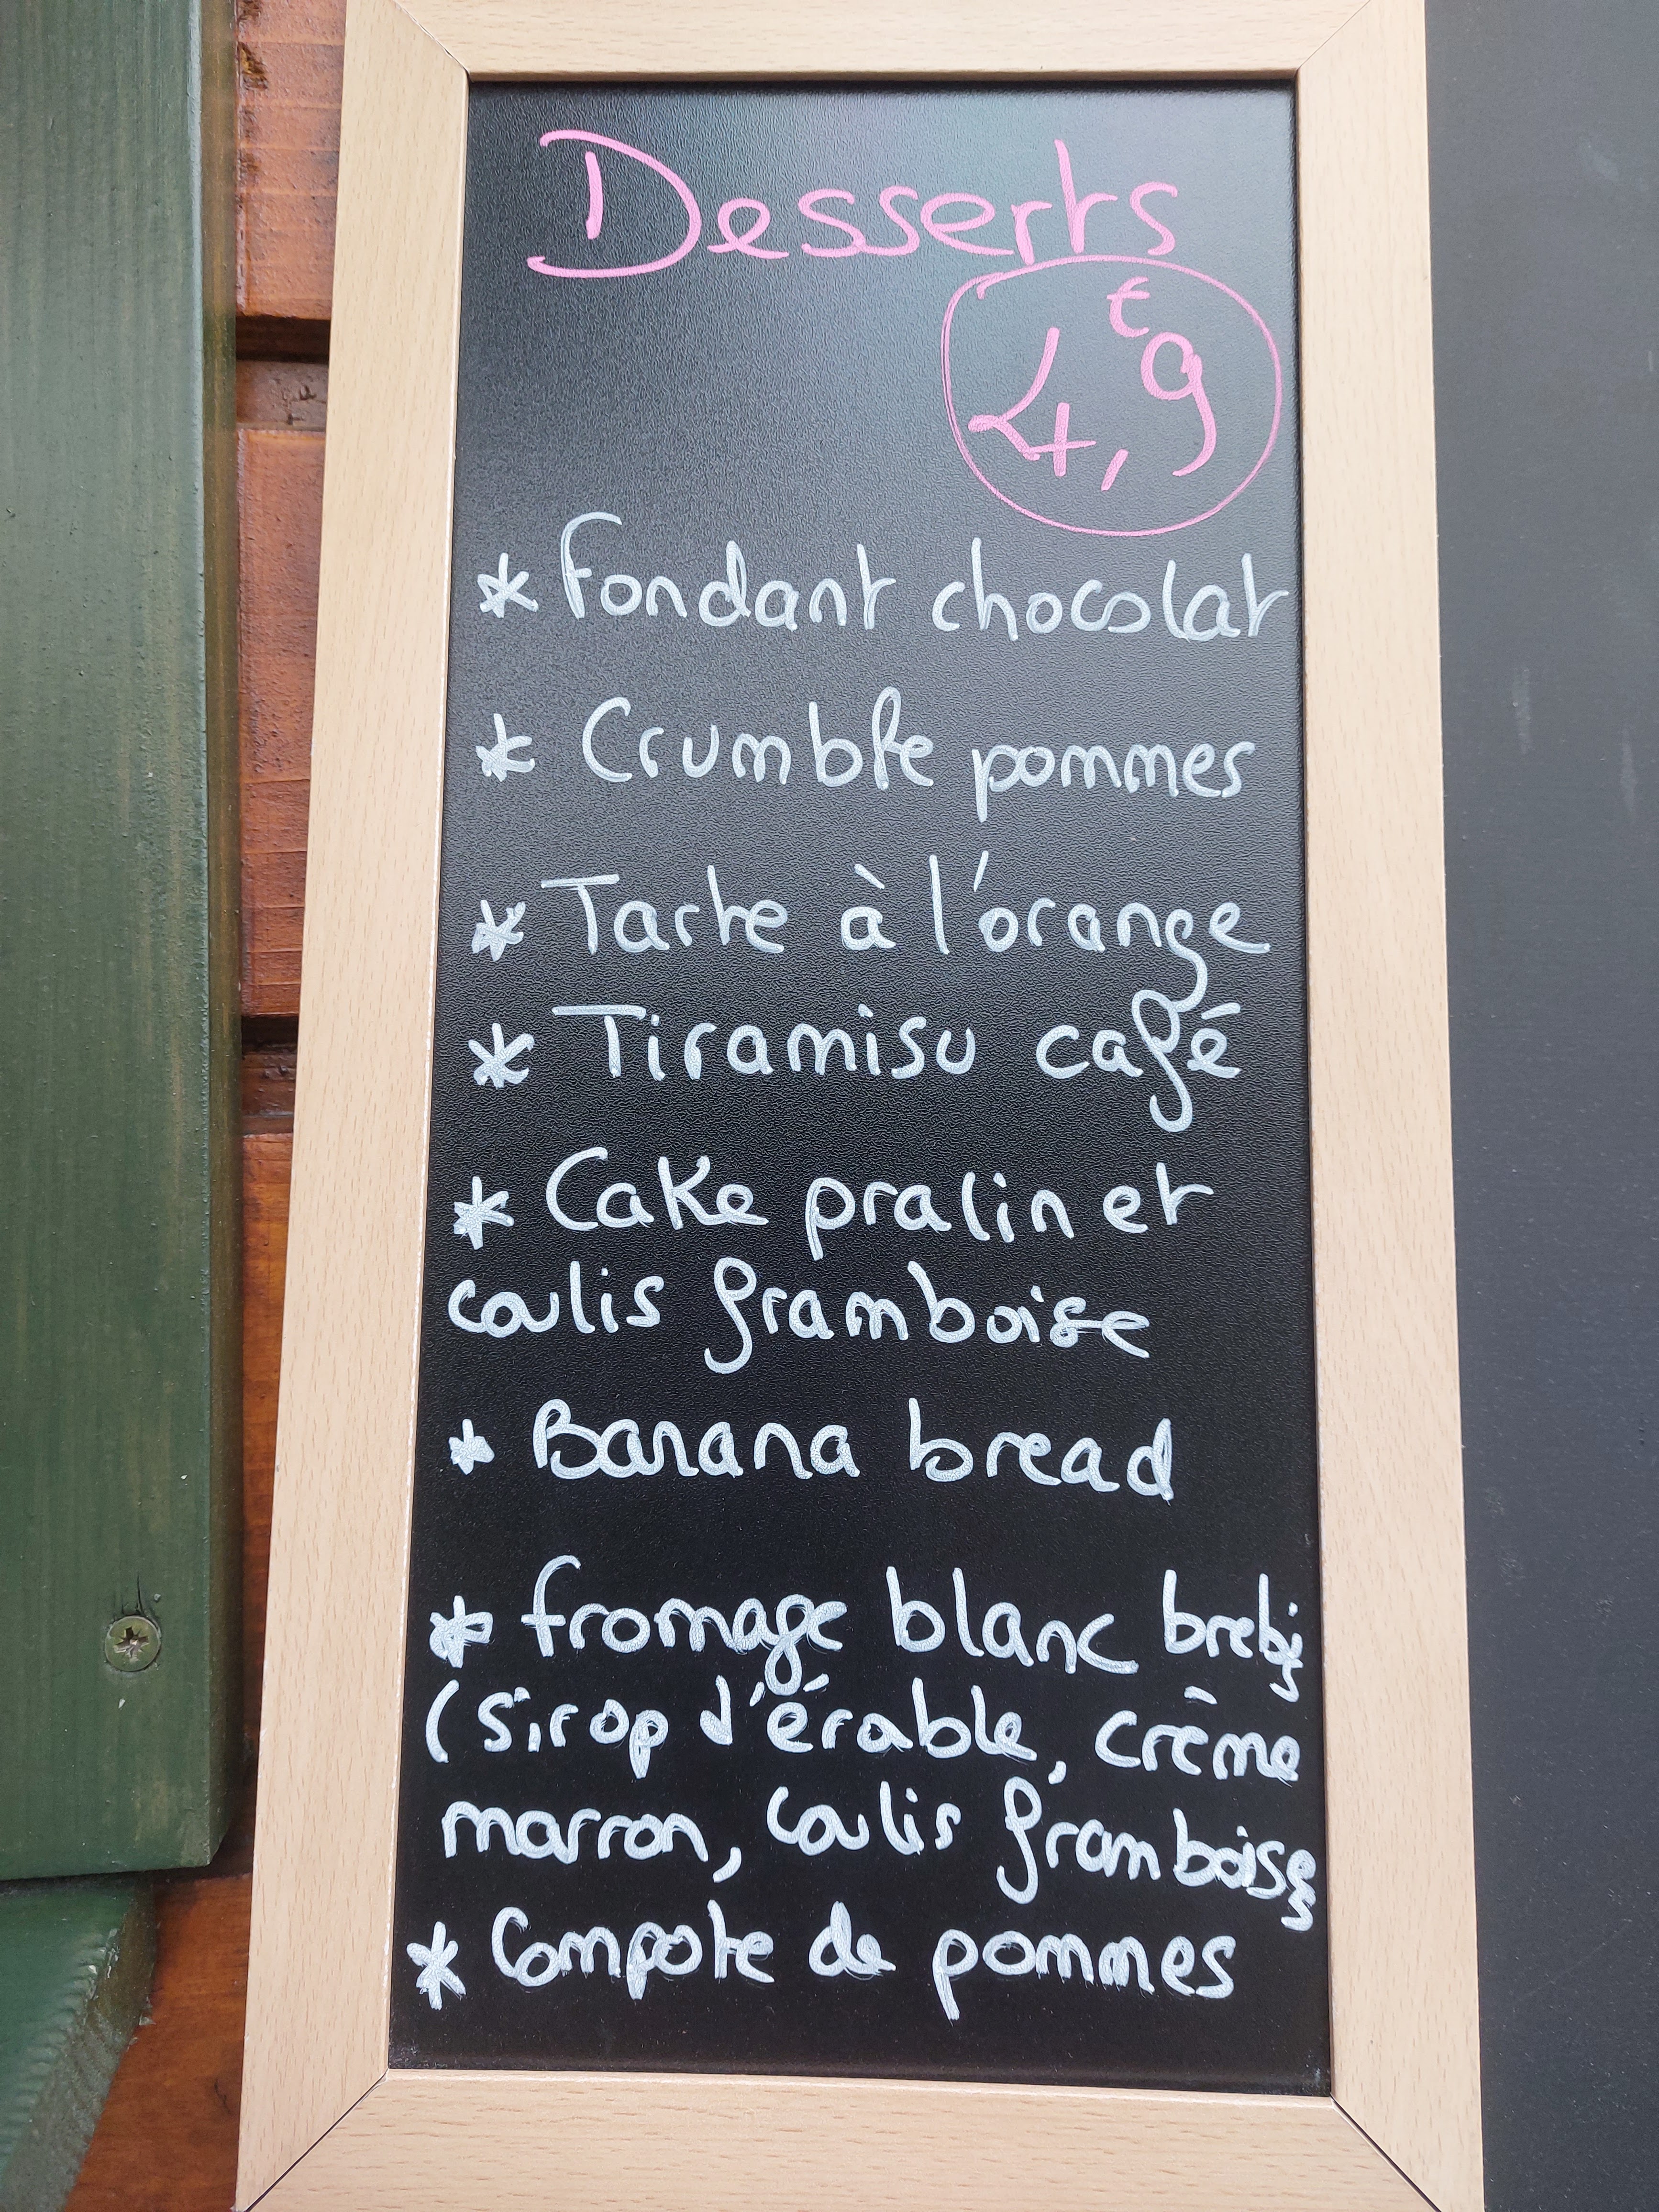 Desserts
4,9€
* Fondant chocolat
* Crumble pommes
* Tarte à l'orange
* Tiramisu café
* Cake pralin et
coulis framboise
* Banana bread
* fromage blanc brebis
(sirop d'érable, crème
marron, coulis framboise
* Compote de pommes